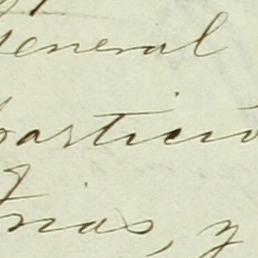 general
particu
rias, y